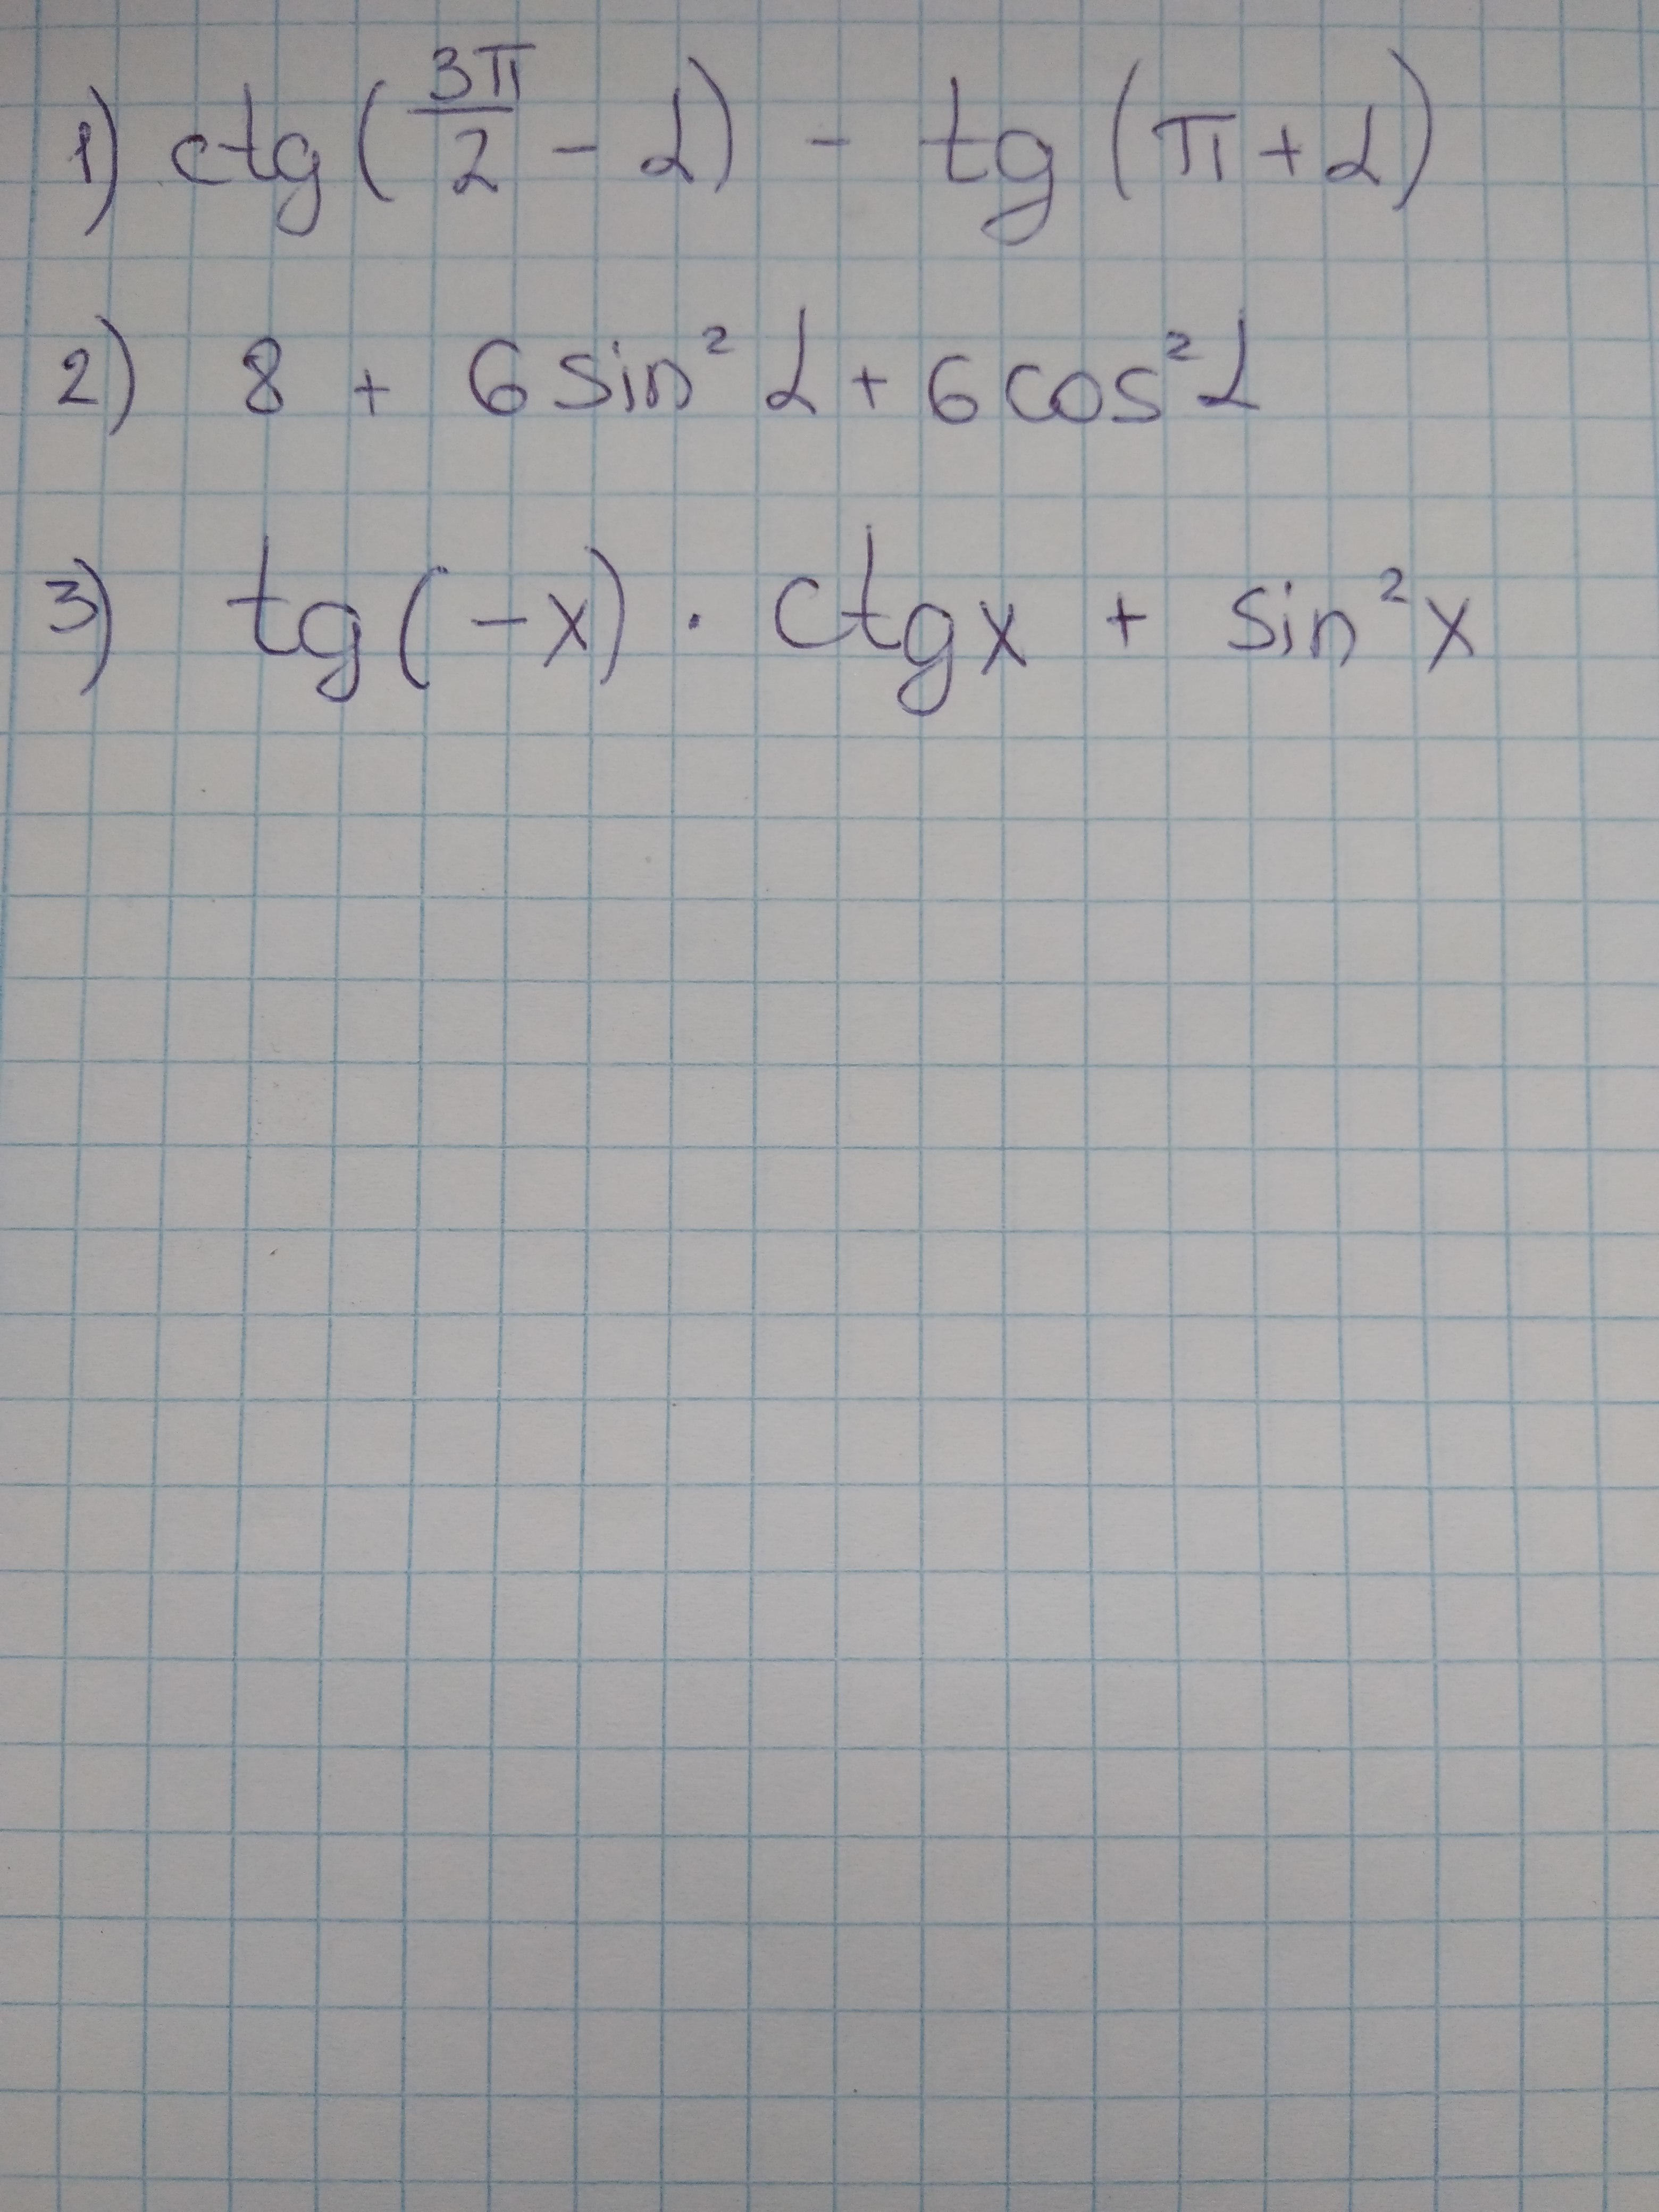 1) ctg(3π/2 - α) - tg(π + α)
2) 8 + 6 sin² α + 6 cos² α
3) tg(-x) · ctgx + sin²x